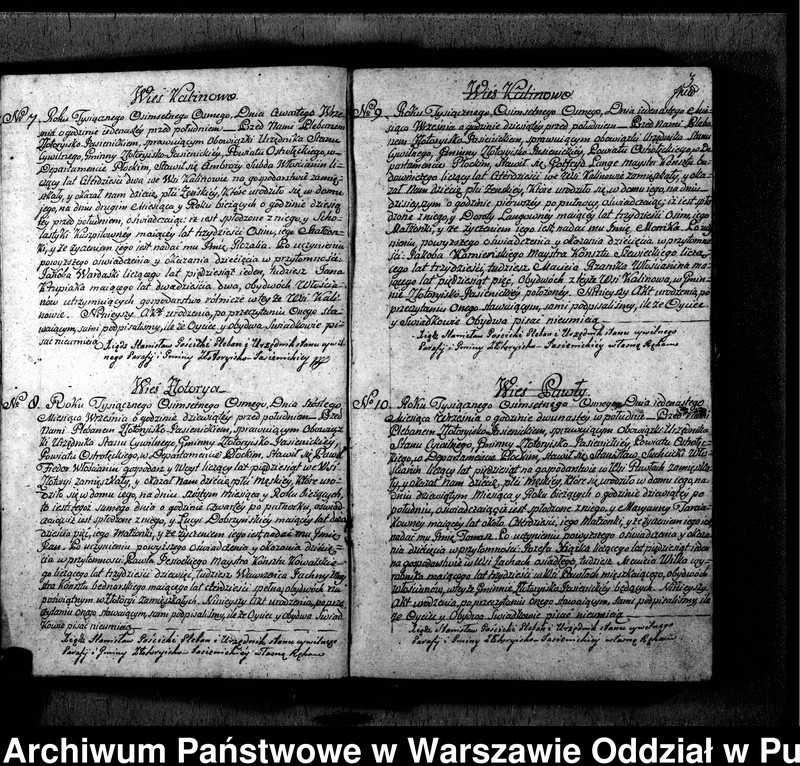 Wieś Kalinowo
No 7. Roku Tysiącznego Osimsetnego Osmego, Dnia Czwartego Wrze-
śnia o godzinie iedenastey przed południem — Przed Nami Plebanem
Złotorysko Jasienickim, sprawuiącym Obowiązki Urzędnika Stanu
Cywilnego, Gminny Złotorysko Jasienickiey, Powiatu Ostrołęckiego, w
Departamencie Płockim, Stawił się Ambroży Włościanin li-
czący lat Czterdzieści dwa we Wsi Kalinowie na gospodarstwie zamię-
szkały, y okazał nam dziecię płci Żeńskiey, które urodziło się w domu
iego, na dniu drugim Miesiąca y Roku bieżących o godzinie dziesią-
tey przed południem, oświadczaiąc: iż iest spłodzone z niego, y Scho-
lastyki maiącey lat trzydzieści Osim, iego Małżon-
ki, y że życzeniem iego iest nadać mu Imię Rozalia. Po uczynieniu
powyższego oświadczenia y okazania dziecięcia w przytomności:
Jakóba Wardaski liczącego lat pięćdziesiąt ieden, tudziesz Jana
Krupiaka maiącego lat dwadzieścia dwa, obydwóch Włościa-
nów utrzymuiących gospodarstwo rolnicze w teyże Wsi Kali-
nowie. Ninieyszy Akt urodzenia, po przeczytaniu Onego Sta-
waiącym, sami podpisaliśmy, ile że Oyciec, y obydwa Swiadkowie pi-
sać nieumieią
Xiądz Stanisław Pleban i Urzędnik stanu cywil-
nego Parafy i Gminy Złotorysko-Jasienickiey
Wieś Złotorya
No 8. Roku Tysiącznego Osimsetnego Osmego, Dnia Szóstego
Miesiąca Września o godzinie dziewiątey przed południem — Przed
Nami Plebanem Złotorysko Jasienickim, sprawuiącym Obowiąz-
ki Urzędnika Stanu Cywilnego, Gminny Złotorysko Jasienickiey,
Powiatu Ostrołęckiego, w Departamencie Płockim, Stawił się Paweł
Fiedor Włościanin gospodarz y Woyt liczący lat pięćdziesiąt we Wsi
Złotoryi zamięszkały, y okazał nam dziecię, płci męskiey, które uro-
dziło się w domu iego, na dniu szóstym Miesiąca y Roku bieżących,
to iest tegoż samego dnia o godzinie Czwartey po północku, oświad-
czaiąc: iż iest spłodzone z niego, y Lucyi Dobrzyńskiey maiącey lat dwa-
dzieścia pięć, iego Małżonki, y że życzeniem iego iest nadać mu Imię
Jan. Po uczynieniu powyższego oświadczenia y okazania dziecię-
cia w przytomności: Pawła Maystra Konsztu Kowalskie-
go liczącego lat trzydzieści dziewięć, tudziesz Wawrzeńca May-
stra Konsztu bednarskiego maiącego lat czterdzieści spełna, obydwóch
w Złotoryi zamięszkałych. Ninieyszy Akt urodzenia, po prze-
czytaniu Onego, stawaiącym, sami podpisaliśmy, ile że Oyciec, y obydwa Swiad-
kowie pisać nieumieią
Xiądz Stanisław Pleban i Urzędnik stanu cywilnego
Parafy i Gminy Złotorysko-Jasienickiey własną Ręką
3
Wieś Kalinowo
No 9. Roku Tysiącznego Osimsetnego Osmego, Dnia iedenastego Mie-
siąca Września o godzinie dziewiątey przed południem — Przed Nami Pleba-
nem Złotorysko Jasienickim, sprawuiącym obowiązki Urzędnika Stanu
Cywilnego, Gminny Złotorysko Jasienickiey, Powiatu Ostrołęckiego w De-
partamencie Płockim, Stawił się Gotfryd Lange maystr Konsztu bu-
downiczego liczący lat Czterdzieści we Wsi Kalinowie zamięszkały, y oka-
zał Nam dziecię płci żeńskiey, które urodziło się w domu iego, na dniu
dzisieyszym o godzinie pierwszey po północy, oświadczaiąc: iż iest spło-
dzone z niego, y Doroty Langowney maiącey lat trzydzieści Osim, iego
Małżonki, y że życzeniem iego iest nadać mu Imię Monika. Po uczy-
nieniu powyższego oświadczenia y okazania dziecięcia w przytomno-
ści: Jakoba Kamieńskiego Maystra Konsztu Szewieckiego liczą-
cego lat trzydzieści, tudziesz Macieia Włościanina ma-
iącego lat pięćdziesiąt pięć, Obydwóch z teyże Wsi Kalinowa, w Gmin-
nie Złotorysko Jasienickiey położoney. Ninieyszy Akt urodzenia, po
przeczytaniu Onego stawaiącym, sami podpisaliśmy, ile że Oyciec
y Swiadkowie Obydwa pisać nieumieią
Xiądz Stanisław Pleban i Urzędnik stanu cywilnego
Parafy i Gminy Złotorysko-Jasienickiey własną Ręką
Wieś Pawły
No 10. Roku Tysiącznego Osimsetnego Osmego Dnia iedenastego
Miesiąca Września o godzinie dwunastey w południe — Przed Nami
Plebanem Złotorysko Jasienickim, sprawuiącym Obowiązki Urzędnika
Stanu Cywilnego, Gminny Złotorysko Jasienickiey, Powiatu Ostrołęc-
kiego, w Departamencie Płockim, Stawił się Stanisław Suchcicki Wło-
ścianin liczący lat pięćdziesiąt na gospodarstwie w Wsi Pawłach zamięszka-
ły, y okazał nam dziecię, płci męskiey, które się urodziło w domu iego, na
dniu dziewiątym Miesiąca y Roku bieżących o godzinie dziewiątey po
południu, oświadczaiąc: iż iest spłodzone z niego, y Maryanny
maiącey lat około Czterdzieści, iego Małżonki, y że życzeniem iego iest
nadać mu Imię Tomasz. Po uczynieniu powyższego oświadczenia y okaza-
nia dziecięcia w przytomności: Jozefa Książka liczącego lat pięćdziesiąt ieden
na gospodarstwie w Wsi Żachach osiadłego, tudziesz Macieia Wilka wy-
robnika maiącego lat trzydzieści w Wsi Pawłach mieszkaiącego, obydwóch
Włościanów, w teyże Gminnie Złotorysko Jasienickiey będących. Ninieyszy
Akt urodzenia, po przeczytaniu Onego Stawaiącym, sami podpisaliśmy, ile
że Oyciec y Obydwa Swiadkowie pisać nieumieią
Xiądz Stanisław Pleban i Urzędnik stanu cywilnego
Parafy i Gminy Złotorysko-Jasienickiey własną Ręką
Archiwum Państwowe w Warszawie Oddział w Pu